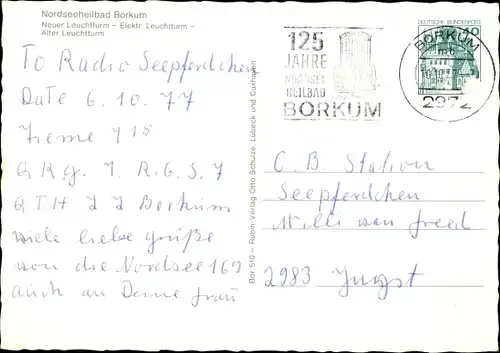 Nordseeheilbad Borkum
Neuer Leuchtturm – Elektr. Leuchtturm –
Alter Leuchtturm
To Radio Seepferdchen
Date 6.10.77
QRG. 7. R.G.S. 7
QTH JJ Borkum
viele liebe grüße
von die Nordsee 169
auch an Deine frau
Bor 510 – Rubin Verlag Otto Schulze, Lübeck und Cuxhaven
125
JAHRE
NORDSEE
HEILBAD
BORKUM
DEUTSCHE BUNDESPOST
40
BORKUM
2972
C.B. Station
Seepferdchen
Willi van
2983